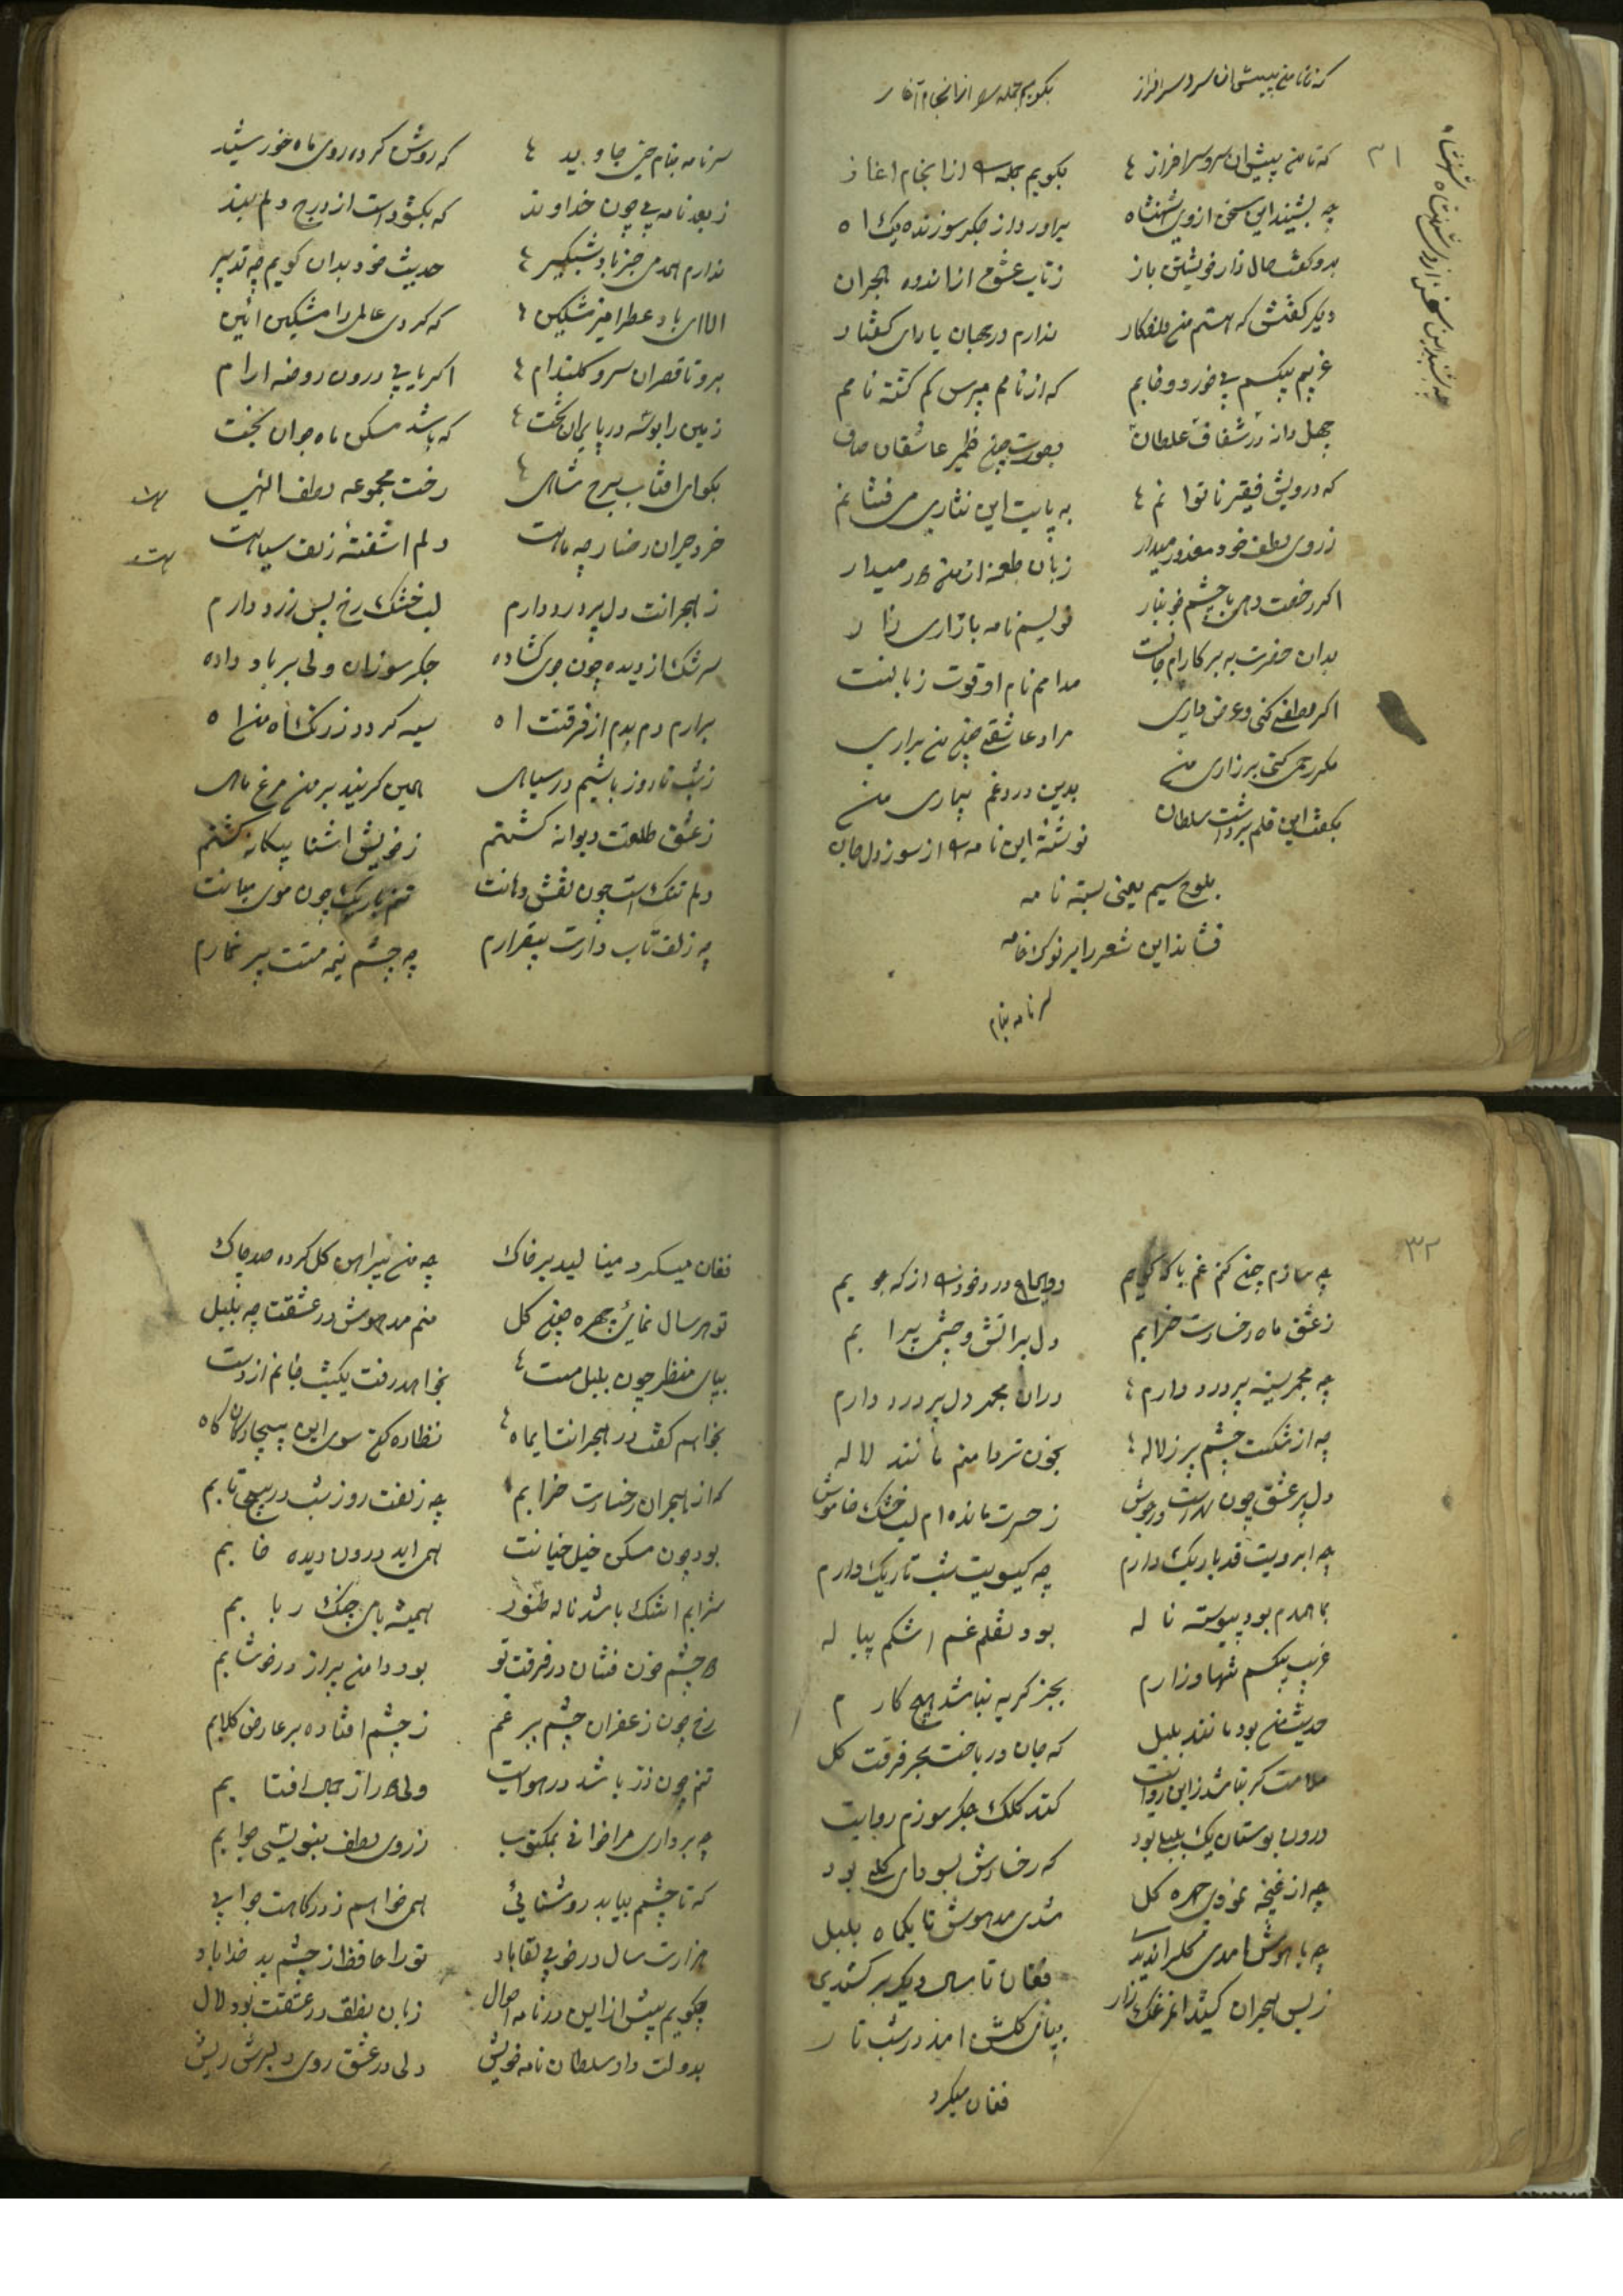 که تا من پیش ان سرو سرافراز بکویم جمله را از انجام آغاز
۳۱
که تا من پیش ان سرو سرافراز بکویم جمله را از انجام اغاز
چه بشنید این سخن از وی شهنشاه براورد از جکر سوزنده یک اه
بدو کفت حال زار خویشتن باز ز تاب عشق از اندوه هجران
دیکر کفتش که هستم من دلفکار ندارم در جهان یارای کفتار
غریبم بیکسم بی خورد و خابم که از نامم مپرس کم کشته نامم
چهل دانه در شفاف غلطان بصورت چون ظمیر عاشقان صاف
که درویش فقیر ناتوانم به پایت این نثاری می فشانم
ز روی لطف خود معذور میدار زبان طعنه از من دور میدار
اکر رخصت دهی با چشم خونبار نویسم نامه با زاری زار
بدان حضرت به بر کارام جانست مدامم نام او قوت زبانست
اکر لطفی کنی و عرض داری مراد عاشقی چون من براری
مکر رحمی کنی بر زاری من بدین درد و غم بیماری من
بکفت این قلم برداشت سلطان نوشت این نامه را از سوز دل جان
بلوح سیم یعنی بسته نامه
فشاند این شعر را بر نوک خامه
سرنامه بنام
چه بشنید این سخن از وی شهنشاه
سرنامه بنام حی جاوید که روشن کرده روی ماه خورشید
ز بعد نامه بی چون خداوند که بکشوده است از درج دلم بند
ندارم همدمی جز باد شبکیر حدیث خود بدان کویم چه تدبیر
الا ای باد عطر امیز مشکین که کردی عالمی را مشکین ائین
برو تا قصر ان سرو کلندام اکر یابی درون روضه ارام
زمین را بوسه در پای ان تخت که باشد مسکن ماه جوان بخت
بکو ای افتاب برج شاهی رخت مجموعه لطف الهی
خرد حیران رخسار چه ماهت دلم اشفته زلف سیاهت
ز هجرانت دل پر درد دارم لب خشک رخ پس زرد دارم
سرشک از دیده چون جوی کشاده جکر سوزان ولی بر باد داده
برارم دم بدم از فرقتت اه سیه کردد ز رنک اه من اه
ز شب تا روز باشیم در سیاهی همین کریند بر من مرغ ماهی
ز عشق طلعتت دیوانه کشتم ز خویش اشنا بیکانه کشتم
دلم تنک است چون نقش دهانت تنم باریک چون موی میانت
چه زلف تاب دارت بیقرارم چه چشم نیمه مستت پر خمارم
۳۲
چه سازم چون کنم غم با که کویم دوای درد خود را از که جویم
ز عشق ماه رخسارت خرابم دل پر اتش و چشم پر ابم
چه مجمر سینه پر درد دارم دران مجمر دل پر درد دارم
چه از شکست چشم پر ز لاله بخون تر دامنم مانند لاله
دل پر عشق چون بهرست در جوش ز حسرت مانده ام لب خشک خاموش
چه ابرویت قد باریک دارم چه کیسویت شب تاریک دارم
بما همدم بود پیوسته ناله بود نقلم غم اشکم پیاله
غریب بیکسم تنها و زارم بجز کریه نباشد هیچ کارم
حدیث من بود مانند بلبل که جان در باخت بهر فرقت کل
ملامت کر نباشد زاین روایت کند کلک جکر سوزم روایت
درون بوستان یک بلبل بود که رخسارش بسودای کلی بود
چه از غنچه نمودی چهره کل شدی مدهوش تا یکماه بلبل
چه با هوش امدی کلرا ندیدی فغان تا سال دیکر بر کشیدی
ز بس هجران کشید مرغک زار بپای کلشن امد در شب تار
فغان میکرد
فغان میکرد مینالید بر خاک چه من پیراهن کل کرده صد چاک
تو هر سال نمائی چهره چون کل منم مدهوش در عشقت چه بلبل
بپای منتظر چون بلبل مست بخواهد رفت یکشب جانم از دست
بخواهم کفت در هجرانت ایماه نظاره کن سوی این بیچاره کاه کاه
که از هجران رخسارت خرابم چه زلفت روز شب در پیچ تابم
بود چون مسکن خیل خیالت همی اید درون دیده خابم
شرابم اشک باشد ناله طنبور همیشه با می چنک ربابم
دو چشم خون فشان در فرقت تو بود دامن پر از در خوشابم
رخ چون زعفران چشم پر غم ز چشم افتاده بر عارض کلابم
تنم چون ذره باشد در هوایت ولی دور از جمال افتابم
چه برداری مرا خوانی بمکتوب ز روی لطف بنویسی جوابم
که تا چشم بیابد روشنائی همی خواهم ز درکاهت جوابی
هزارت سال در خوبی بقا باد تو را حافظ از چشم بد خدا باد
چکویم بیش از این در نامه احوال زبان نطق در عشقت بود لال
بدولت داد سلطان نامه خویش دلی در عشق روی دلبرش ریش